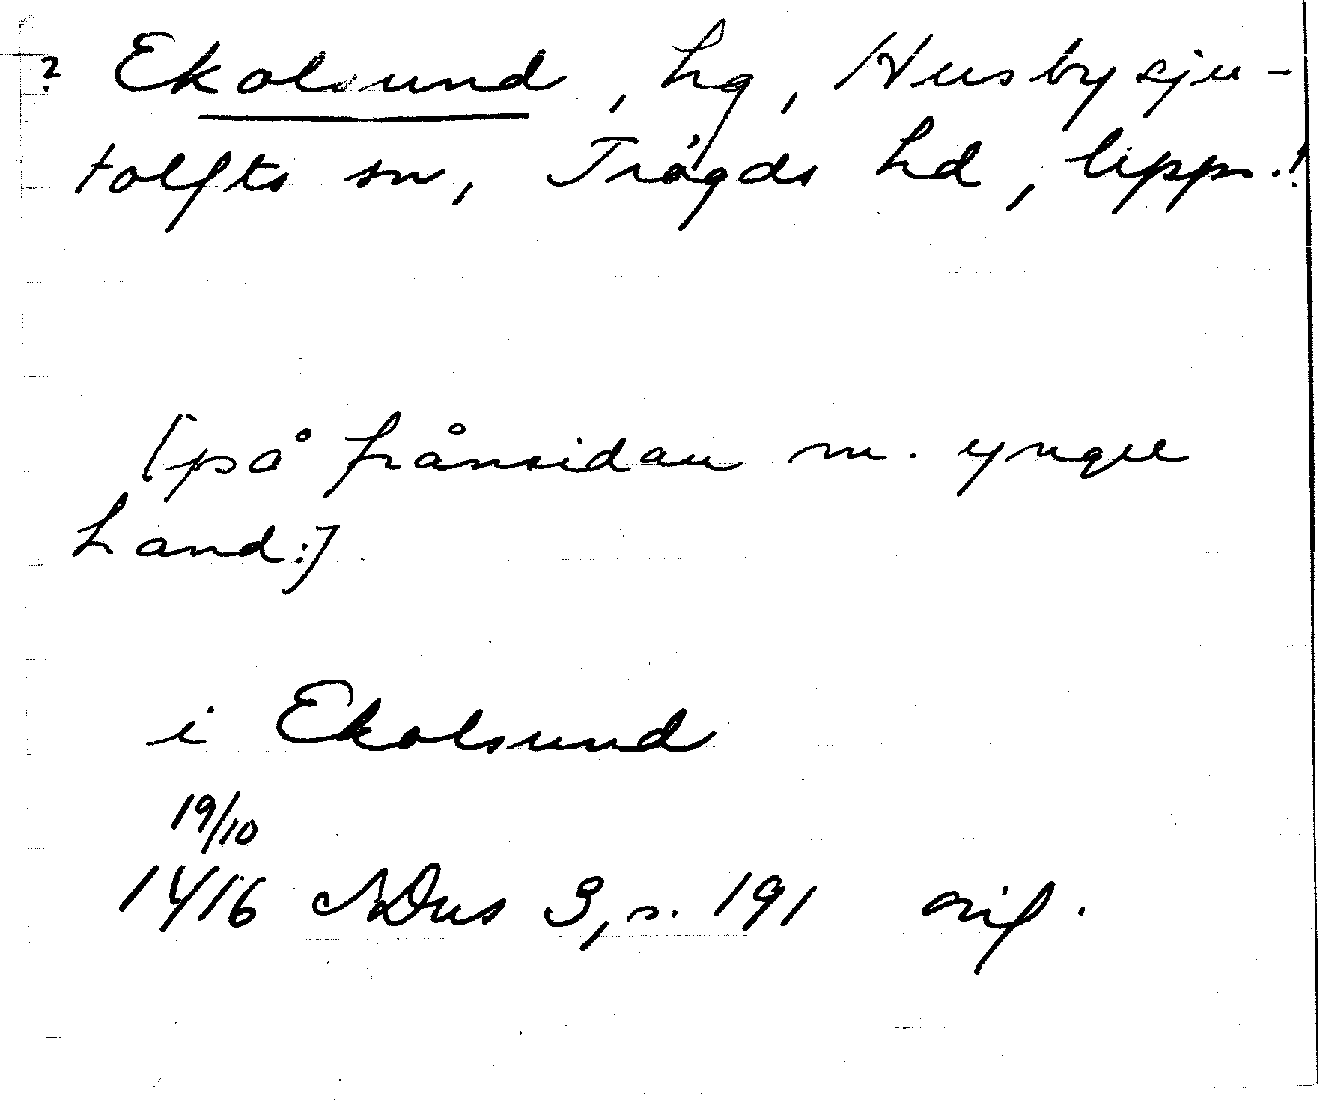 ? Ekolsund, hg, Husbysju-
tolfts sn, Trögds hd, Uppsn.!
[på frånsidan m. yngre
hand:]
i Ekolsund
19/10
1416 SDns 3, s. 191 orig.